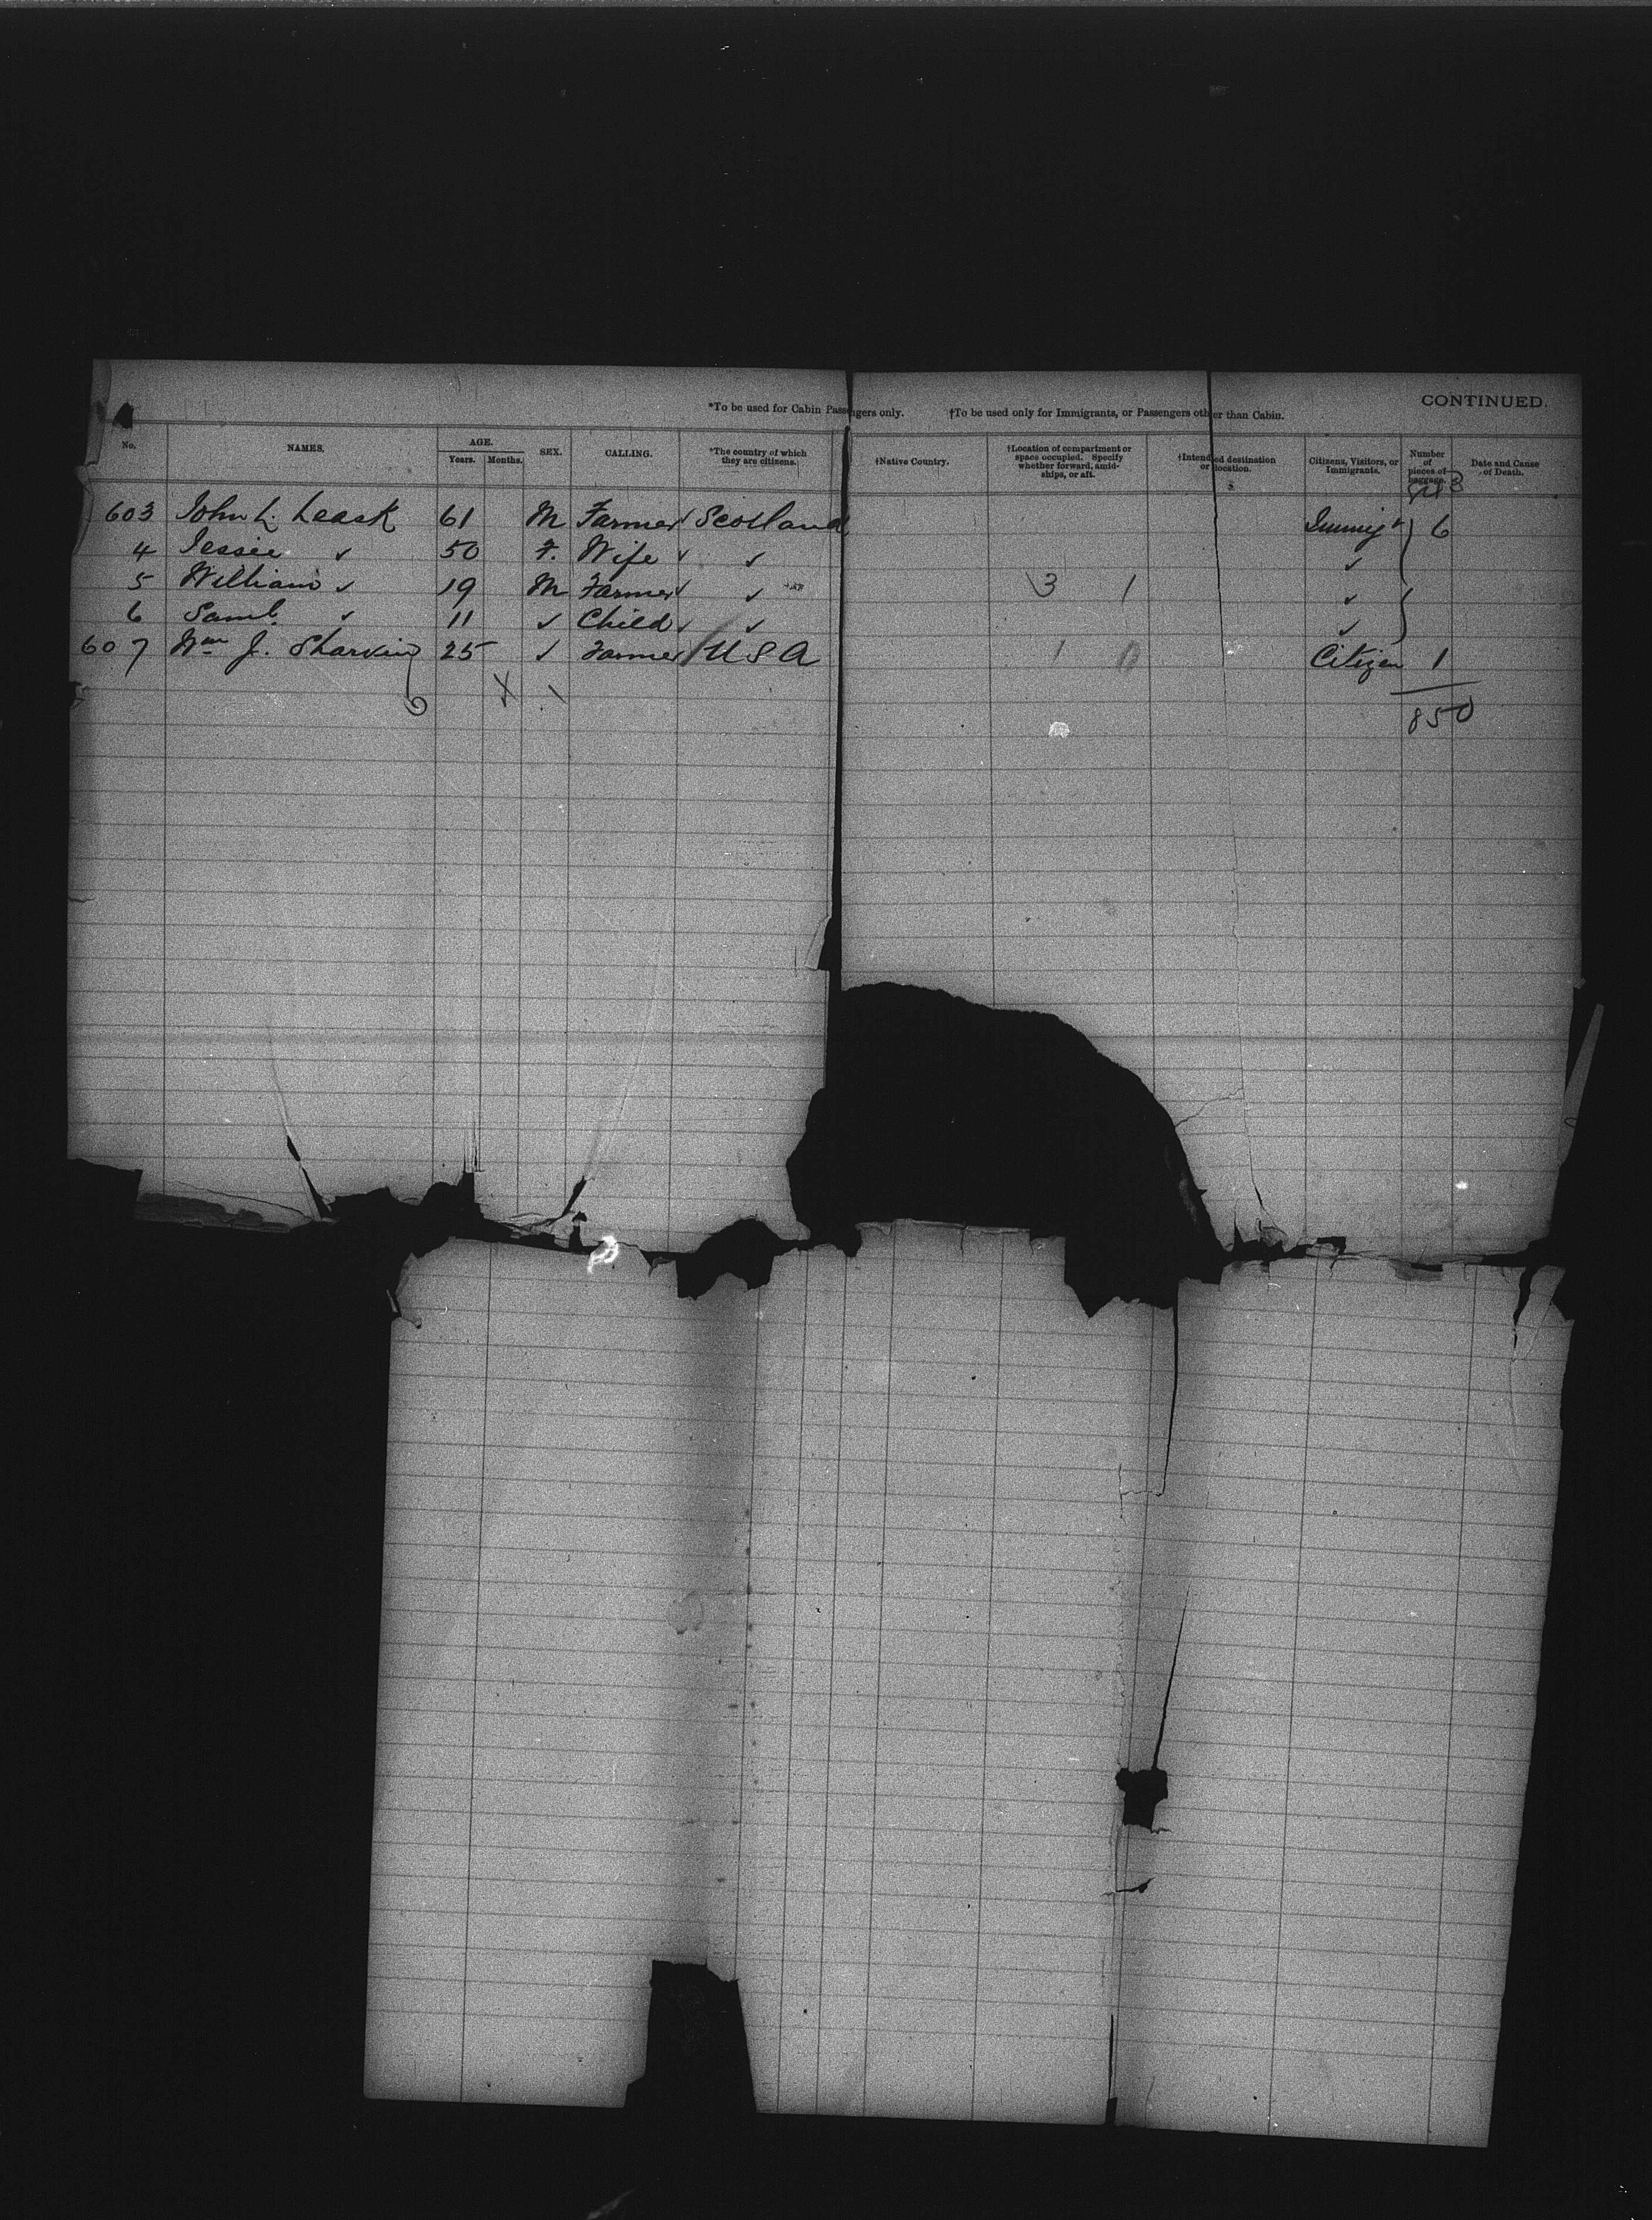 CONTINUED.
*To be used for Cabin Passengers only. †To be used only for Immigrants, or Passengers other than Cabin.
No. NAMES. AGE. Years. Months. SEX. CALLING. *The country of which they are citizens. †Native Country. †Location of compartment or space occupied. Specify whether forward, amidships, or aft. †Intended destination or location. Citizens, Visitors, or Immigrants. Number of pieces of baggage. Date and Cause of Death.
843
603 John L. Leask 61 M Farmer Scotland Immigt 6
4 Jessie ✓ 50 F. Wife ✓ ✓
5 William ✓ 19 M Farmer ✓ 3 1 ✓
6 Saml. ✓ 11 ✓ Child ✓ ✓
607 Wm J. 25 ✓ Farmer USA 1 0 Citizen 1
850